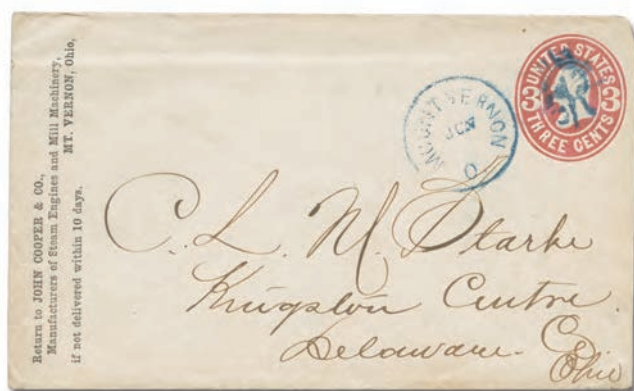 Return to JOHN COOPER & CO.,
Manufacturers of Steam Engines and Mill Machinery,
MT. VERNON, Ohio,
if not delivered within 10 days.
MOUNT VERNON
JUN
O
UNITED STATES
3 3
THREE CENTS
C. L. M. Starke
Kingston Centre
Delaware Co
Ohio